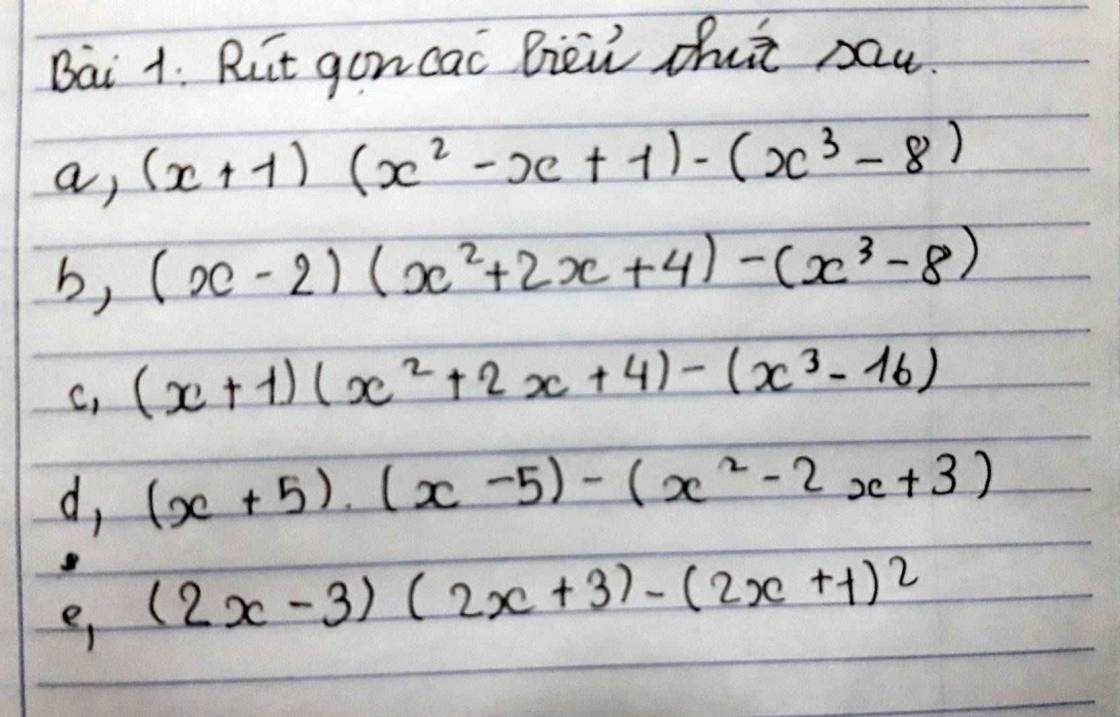 Bài 1. Rút gọn các biểu thức sau.
a, (x + 1) (x² - x + 1) - (x³ - 8)
b, (x - 2) (x² + 2x + 4) - (x³ - 8)
c, (x + 1) (x² + 2x + 4) - (x³ - 16)
d, (x + 5) . (x - 5) - (x² - 2x + 3)
e, (2x - 3) (2x + 3) - (2x + 1)²